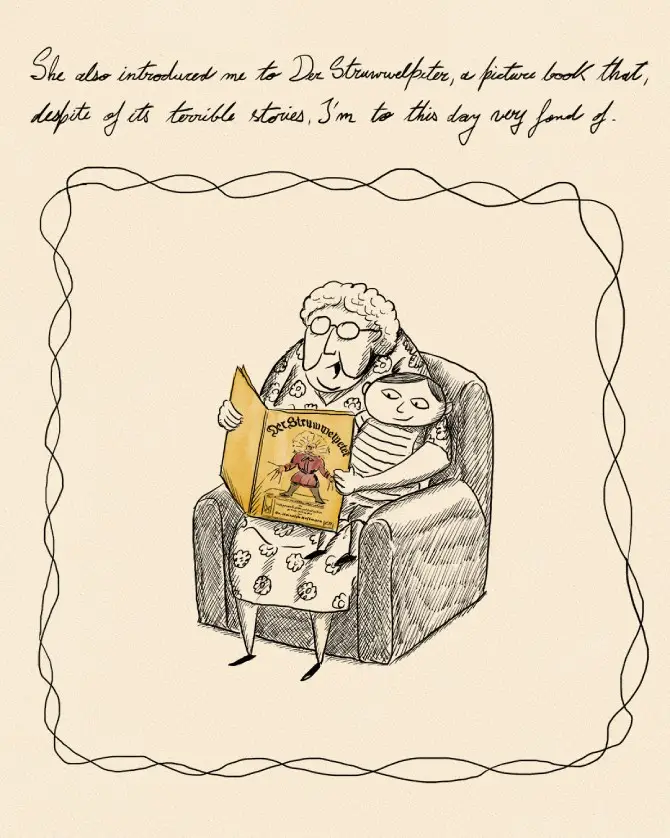 She also introduced me to Der Struwwelpiter, a picture book that,
despite of its terrible stories, I'm to this day very fond of.
Der Struwwelpeter